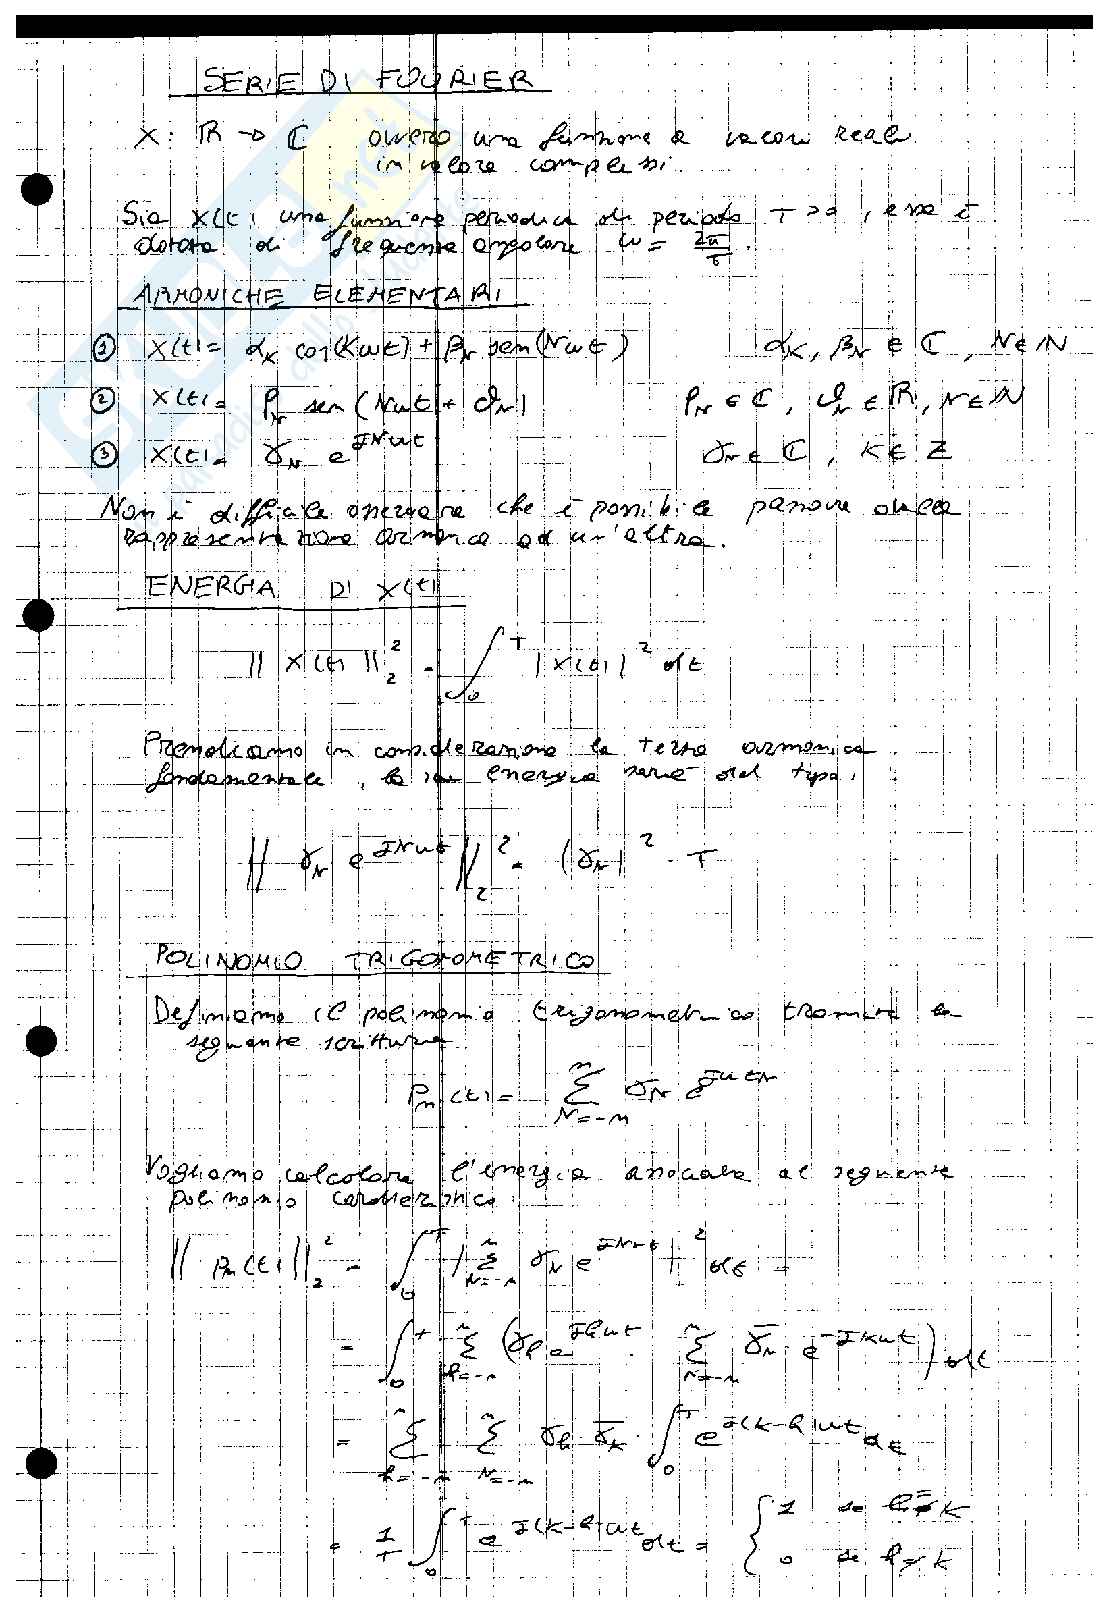 SERIE DI FOURIER
X: ℝ → ℂ ovvero una funzione a valori reali
in valore complessi.
Sia X(t) una funzione periodica di periodo T>0, essa è
dotata di frequenza angolare ω = 2π/T.
ARMONICHE ELEMENTARI
① X(t) = α_K cos(Kωt) + β_N sen(Nωt) α_K, β_N ∈ ℂ, N∈ℕ
② X(t) = ρ_N sen(Nωt + ϑ_N) ρ_N ∈ ℂ, ϑ_N ∈ ℝ, N∈ℕ
③ X(t) = γ_N e^{jNωt} γ_N ∈ ℂ, K∈ℤ
Non è difficile osservare che è possibile passare da una
rappresentazione armonica ad un'altra.
ENERGIA DI X(t)
||X(t)||₂² = ∫₀ᵀ |X(t)|² dt
Prendiamo in considerazione la terza armonica
fondamentale, la sua energia sarà del tipo:
||γ_N e^{jNωt}||₂² = |γ_N|² · T
POLINOMIO TRIGONOMETRICO
Definiamo il polinomio trigonometrico tramite la
seguente scrittura
P_n(t) = Σ_{N=-n}^{n} γ_N e^{jωtN}
Vogliamo calcolare l'energia associata al seguente
polinomio caratteristico:
||p_n(t)||₂² = ∫₀ᵀ |Σ_{N=-n}^{n} γ_N e^{jNωt}|² dt =
= ∫₀ᵀ Σ_{h=-n}^{n} (γ_h e^{jhωt} Σ_{N=-n}^{n} γ̄_N e^{-jkωt}) dt
= Σ_{h=-n}^{n} Σ_{N=-n}^{n} γ_h γ̄_k ∫₀ᵀ e^{j(k-h)ωt} dt
= 1/T ∫₀ᵀ e^{j(k-h)ωt} dt = { 1 se h = k
0 se h ≠ k